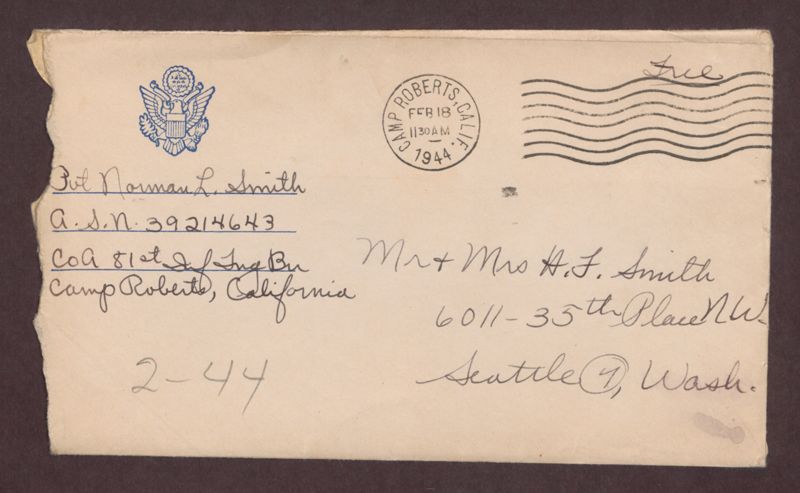 Free
CAMP ROBERTS, CALIF.
FEB 18
1130 AM
1944
Pvt Norman L. Smith
A.S.N. 39214643
Co A 81st Inf Trng Bn
Camp Roberts, California
Mr + Mrs H. F. Smith
6011-35th Place N.W.
Seattle 7, Wash.
2-44